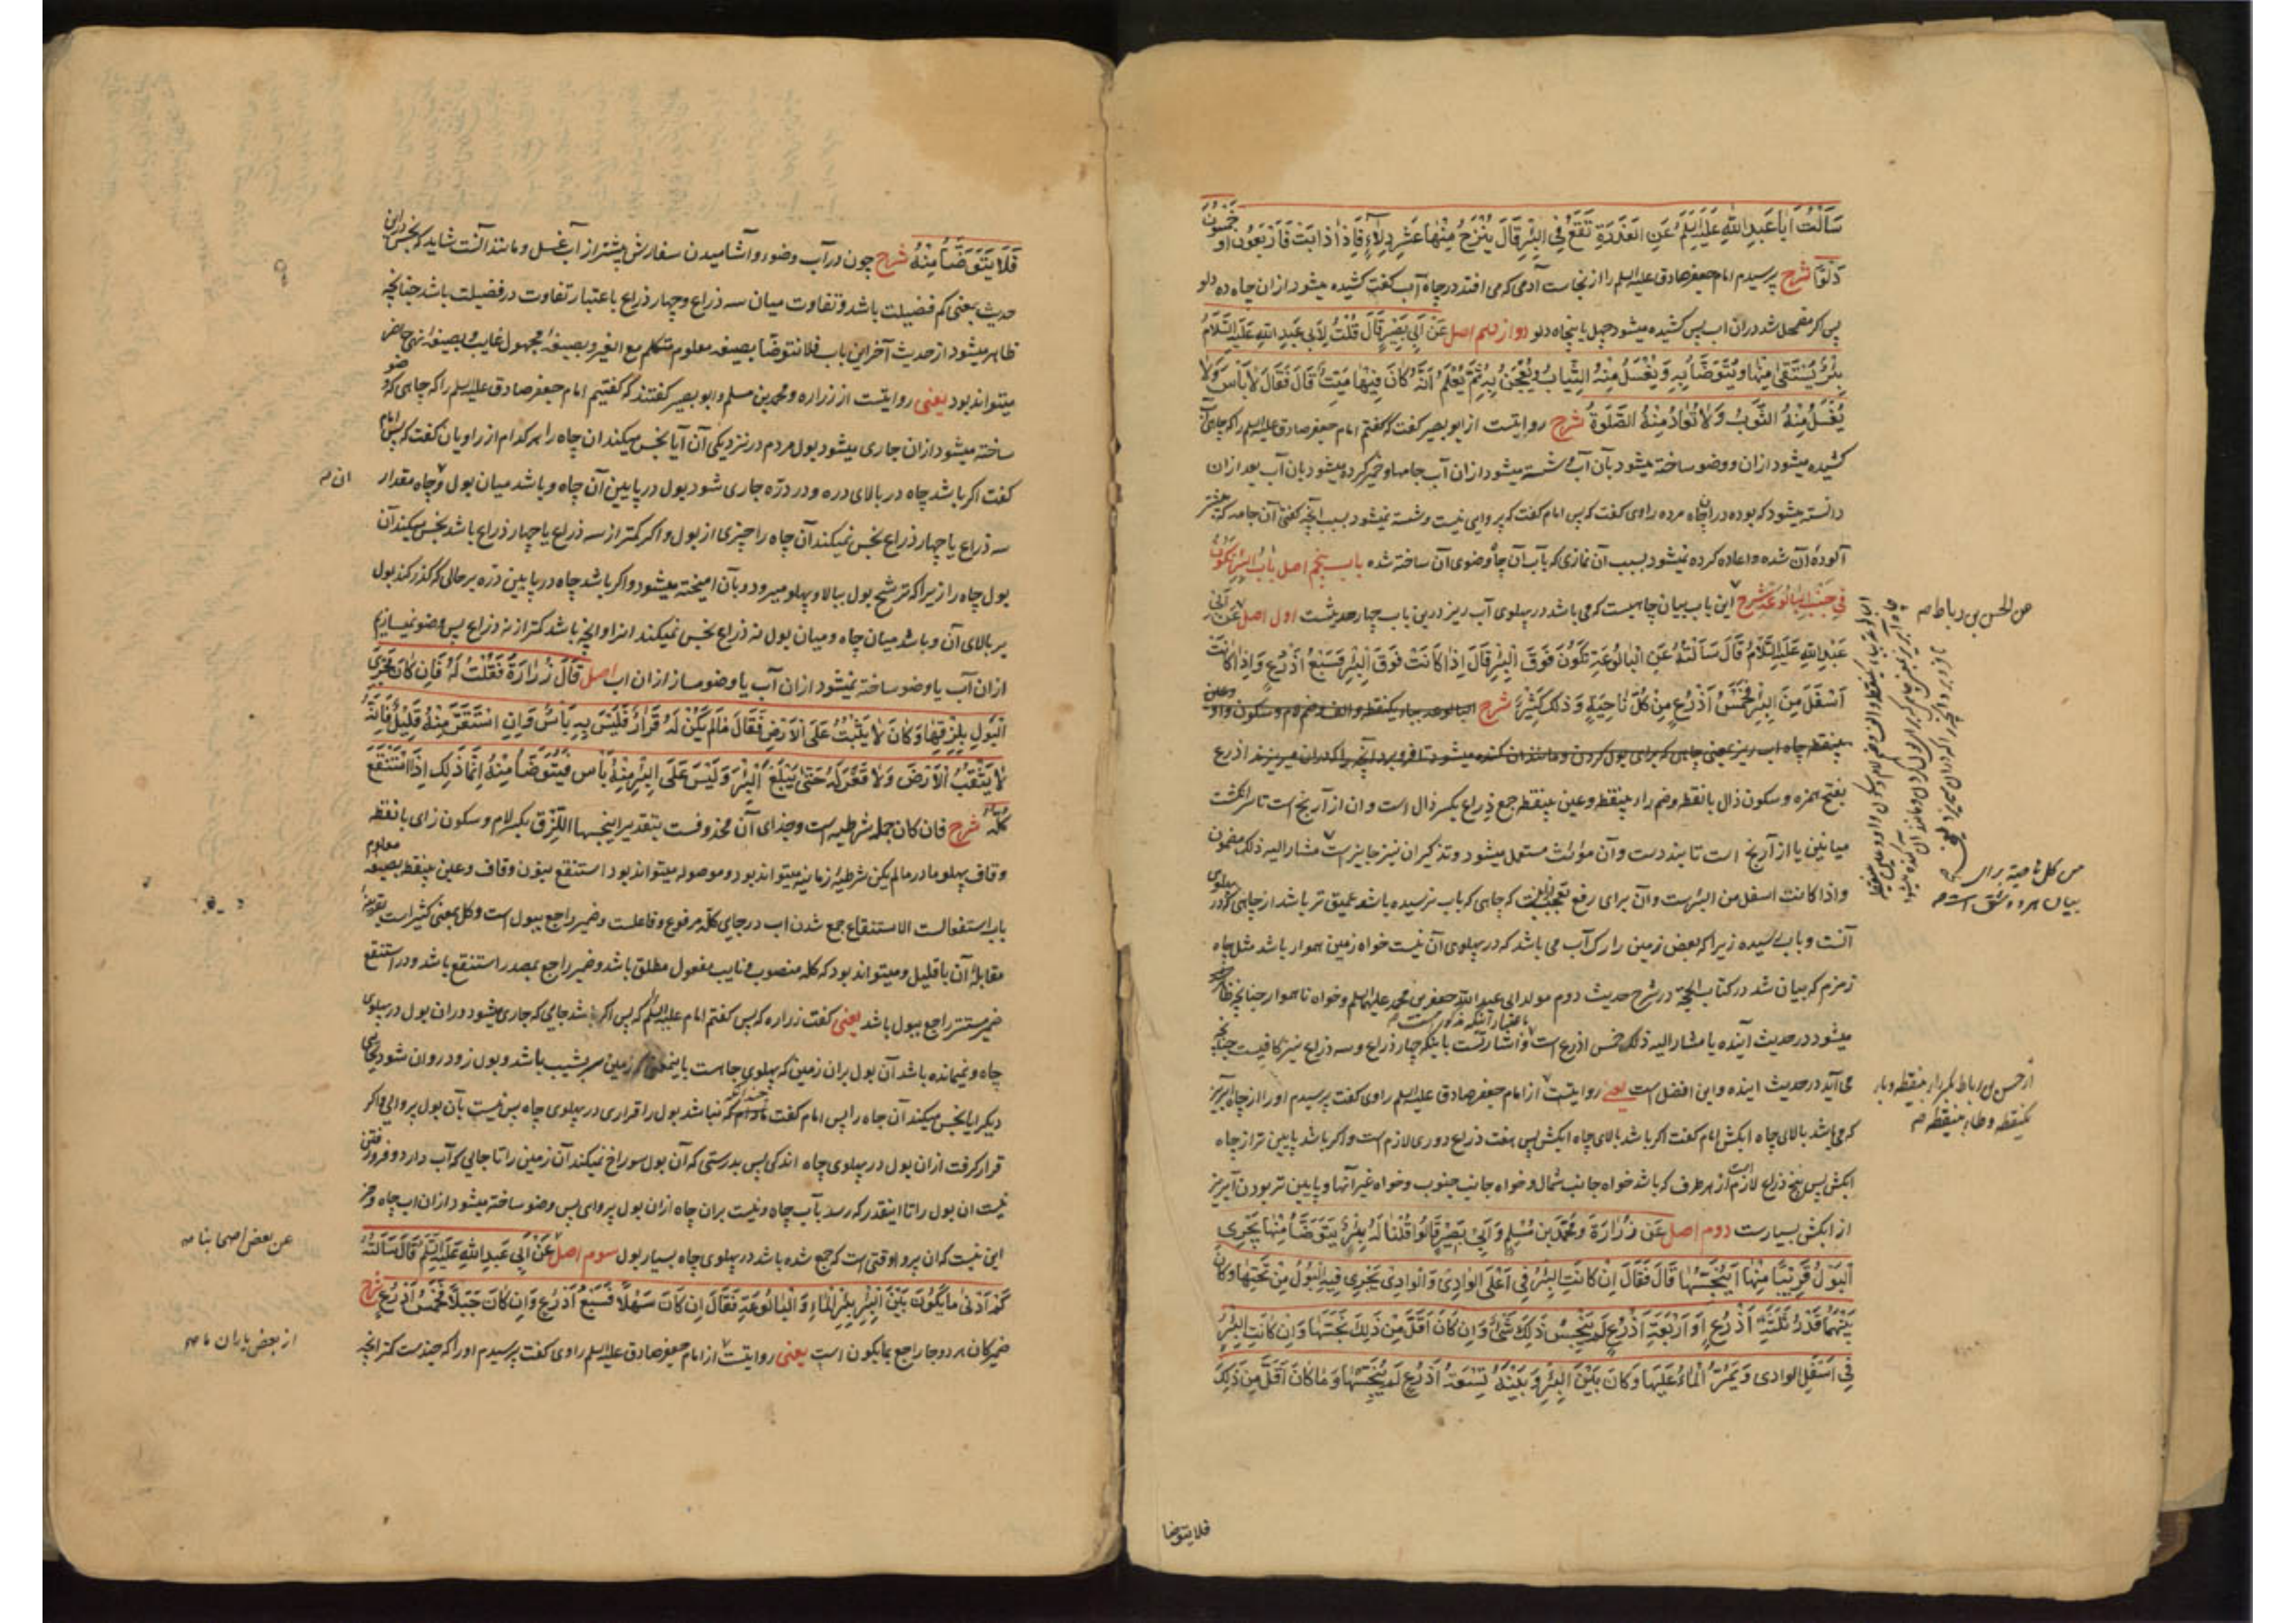 سَأَلْتُ أَبَا عَبْدِ اللّٰهِ عَلَيْهِ السَّلَمُ عَنِ الْعَذَرَةِ تَقَعُ فِي الْبِئْرِ قَالَ يُنْزَحُ مِنْهَا عَشْرُ دِلَاءٍ فَإِذَا ذَابَتْ فَأَرْبَعُونَ أَوْ خَمْسُونَ
دَلْوًا شرح پرسیدم امام جعفر صادق علیه السلم را از نجاست آدمی که می افتد در چاه آب گفت کشیده میشود ازان چاه ده دلو
پس اکر مضمحل شد دران اب پس کشیده میشود چهل یا پنجاه دلو دوازدهم اصل عَنْ أَبِي بَصِيرٍ قَالَ قُلْتُ لِأَبِي عَبْدِ اللّٰهِ عَلَيْهِ السَّلَامُ
بِئْرٌ يُسْتَقَى مِنْهَا وَيُتَوَضَّأُ بِهِ وَيُغْسَلُ مِنْهُ الثِّيَابُ وَيُعْجَنُ بِهِ ثُمَّ يُعْلَمُ أَنَّهُ كَانَ فِيهَا مَيِّتٌ قَالَ فَقَالَ لَا بَأْسَ وَلَا
يُغْسَلُ مِنْهُ الثَّوْبُ وَلَا تُعَادُ مِنْهُ الصَّلٰوةُ شرح روایتست از ابو بصیر گفت که گفتم امام جعفر صادق علیه السلم را که چاهی آب
کشیده میشود ازان و وضو ساخته میشود بآن آب و شسته میشود ازان آب جامها و خمیر کرده میشود بان آب بعد ازان
دانسته میشود که بوده دران چاه مرده راوی گفت که پس امام گفت که پروایی نیست و شسته نمیشود بسبب آنچه گفتی آن جامه که پیشتر
آلوده آن شده و اعاده کرده نمیشود بسبب آن نمازی که بآب آن چاه وضوی آن ساخته شده باب پنجم اصل بَابُ الْبِئْرِ تَكُونُ
فِي جَنْبِ الْبَالُوعَةِ شرح این باب بیان چاهیست که می باشد در پهلوی آب ریز درین باب چهار حدیثست اول اصل عَنْ أَبِي
عَبْدِ اللّٰهِ عَلَيْهِ السَّلَامُ قَالَ سَأَلْتُهُ عَنِ الْبَالُوعَةِ تَكُونُ فَوْقَ الْبِئْرِ قَالَ إِذَا كَانَتْ فَوْقَ الْبِئْرِ فَسَبْعُ أَذْرُعٍ وَإِذَا كَانَتْ
أَسْفَلَ مِنَ الْبِئْرِ فَخَمْسُ أَذْرُعٍ مِنْ كُلِّ نَاحِيَةٍ وَذٰلِكَ كَثِيرٌ شرح البالوعه بباء یکنقطه والف وضم لام وسکون واو وعین
بینقطه چاه اب ریز یعنی چاهی که برای بول کردن و مانند ان کنده میشود تا فرو برد آنچه را که دران میریزند اذرع
بفتح همزه و سکون ذال بانقطه وضم راء بینقطه وعین بینقطه جمع ذراع بکسر ذال است وان از آرنج است تا سر انگشت
میانین یا از آرنج است تا بند دست وآن مؤنث مستعمل میشود وتذکیر ان نیز جایز است مشار الیه ذلک مضمون
واذا کانت اسفل من البئر است وآن برای رفع تعجب اینست که چاهی که باب نرسیده باشد عمیق تر باشد از چاهی که در پهلوی
آنست وباب رسیده زیرا که بعض زمین را رک آب می باشد که در پهلوی آن نیست خواه زمین هموار باشد مثل چاه
زمزم که بیان شد در کتاب الحجه در شرح حدیث دوم مولد ابی عبد الله جعفر بن محمد علیهما السلم وخواه ناهموار چنانچه ظاهر
میشود در حدیث آینده یا مشار الیه ذلک خمس اذرع است باعتبار آنکه مذکور است و اشارتست باینکه چهار ذراع وسه ذراع نیز کافیست چنانچه
می آید در حدیث اینده واین افضل است یعنی روایتست از امام جعفر صادق علیه السلم راوی گفت پرسیدم اورا از چاه آبریز
که می باشد بالای چاه ابکش امام گفت اکر باشد بالای چاه ابکش پس هفت ذراع دوری لازم است واکر باشد پایین تر از چاه
ابکش پس پنج ذراع لازم است از هر طرف که باشد خواه جانب شمال وخواه جانب جنوب وخواه غیر آنها وپایین تر بودن آبریز
از ابکش بسیارست دوم اصل عَنْ زُرَارَةَ وَمُحَمَّدِ بْنِ مُسْلِمٍ وَأَبِي بَصِيرٍ قَالُوا قُلْنَا لَهُ بِئْرٌ يُتَوَضَّأُ مِنْهَا يَجْرِي
الْبَوْلُ قَرِيبًا مِنْهَا أَيُنَجِّسُهَا قَالَ فَقَالَ إِنْ كَانَتِ الْبِئْرُ فِي أَعْلَى الْوَادِي وَالْوَادِي يَجْرِي فِيهِ الْبَوْلُ مِنْ تَحْتِهَا وَكَانَ
بَيْنَهُمَا قَدْرُ ثَلٰثَةِ أَذْرُعٍ أَوْ أَرْبَعَةِ أَذْرُعٍ لَمْ يُنَجِّسْ ذٰلِكَ شَيْءٌ وَإِنْ كَانَ أَقَلَّ مِنْ ذٰلِكَ نَجَّسَهَا وَإِنْ كَانَتِ الْبِئْرُ
فِي أَسْفَلِ الْوَادِي وَيَمُرُّ الْمَاءُ عَلَيْهَا وَكَانَ بَيْنَ الْبِئْرِ وَبَيْنَهُ تِسْعَةُ أَذْرُعٍ لَمْ يُنَجِّسْهَا وَمَا كَانَ أَقَلَّ مِنْ ذٰلِكَ
عن الحسن بن رباط صه
من کل ناحیة برای
بیان هر دو شق است صه
از حسن بن رباط بکسر راء بینقطه وباء
یکنقطه وطاء بینقطه صه
فلا یتوضا
فَلَا يُتَوَضَّأُ مِنْهُ شرح چون در آب وضوء وآشامیدن سفارش بیشتر از آب غسل ومانند آنست شاید که نجس درین
حدیث بمعنی کم فضیلت باشد وتفاوت میان سه ذراع وچهار ذراع باعتبار تفاوت در فضیلت باشد چنانچه
ظاهر میشود از حدیث آخر این باب فلا نتوضأ بصیغه معلوم متکلم مع الغیر وبصیغهٔ مجهول غایب وبصیغهٔ نهی حاضر
میتواند بود یعنی روایتست از زراره ومحمد بن مسلم وابو بصیر گفتند که گفتیم امام جعفر صادق علیه السلم را که چاهی که وضو
ساخته میشود ازان جاری میشود بول مردم در نزدیکی آن آیا نجس میکند ان چاه را هر کدام از راویان گفت که پس امام
گفت اکر باشد چاه در بالای دره ودر دره جاری شود بول در پایین آن چاه وباشد میان بول وچاه مقدار
سه ذراع یا چهار ذراع نجس نمیکند آن چاه را چیزی از بول واکر کمتر از سه ذراع یا چهار ذراع باشد نجس میکند آن
بول چاه را زیرا که ترشح بول ببالا وپهلو میرود وبآن امیخته میشود واکر باشد چاه در پایین دره بر حالی که گذر کند بول
بر بالای آن وباشد میان چاه ومیان بول نه ذراع نجس نمیکند انرا وانچه باشد کمتر از نه ذراع پس وضو نمیسازیم
ازان آب یا وضو ساخته نمیشود ازان آب یا وضو مساز ازان اب اصل قَالَ زُرَارَةُ فَقُلْتُ لَهُ فَإِنْ كَانَ مَجْرَى
الْبَوْلِ بِلِزْقِهَا وَكَانَ لَا يَثْبُتُ عَلَى الْأَرْضِ فَقَالَ مَا لَمْ يَكُنْ لَهُ قَرَارٌ فَلَيْسَ بِهِ بَأْسٌ فَإِنِ اسْتَقَرَّ مِنْهُ قَلِيلٌ فَإِنَّهُ
لَا يَثْقُبُ الْأَرْضَ وَلَا قَعْرَ لَهُ حَتَّى يَبْلُغَ الْبِئْرَ وَلَيْسَ عَلَى الْبِئْرِ مِنْهُ بَأْسٌ فَيُتَوَضَّأُ مِنْهُ إِنَّمَا ذٰلِكَ إِذَا اسْتَنْقَعَ
كُلُّهُ شرح فان کان جمله شرطیه است وجزای آن محذوفست بتقدیر اینجسها اللزق بکسر لام وسکون زای بانقطه
وقاف پهلو ما در ما لم یکن شرطیهٔ زمانیه میتواند بود وموصوله میتواند بود استنقع بنون وقاف وعین بینقطه بصیغه معلوم
باب استفعالست الاستنقاع جمع شدن اب در جای کلّه مرفوع وفاعلست وضمیر راجع ببول است وکل بمعنی کثیر است بقرینهٔ
مقابلهٔ آن با قلیل ومیتواند بود که کله منصوب ونایب مفعول مطلق باشد وضمیر راجع بمصدر استنقع باشد ودر استنقع
ضمیر مستتر راجع ببول باشد یعنی گفت زراره که پس گفتم امام علیه السلم را که پس اکر باشد جایی که جاری میشود دران بول در پهلوی
چاه ونمیمانده باشد آن بول بران زمین که پهلوی چاست باینمعنی که زمین سرشیب باشد وبول زود روان شود بجای
دیکر ایا نجس میکند آن چاه را پس امام گفت چندانکه نباشد بول را قراری در پهلوی چاه پس نیست بآن بول پروایی واکر
قرار گرفت ازان بول در پهلوی چاه اندکی پس بدرستی که آن بول سوراخ نمیکند آن زمین را تا جایی که آب دارد وفرو رفتن
نیست ان بول را تا اینقدر که رسد بآب چاه ونیست بران چاه ازان بول پروای پس وضو ساخته میشود ازان اب چاه وجز
این نیست که ان پروا وقتی است که جمع شده باشد در پهلوی چاه بسیار بول سوم اصل عَنْ أَبِي عَبْدِ اللّٰهِ عَلَيْهِ السَّلَمُ قَالَ سَأَلْتُهُ
كَمْ أَدْنَى مَا يَكُونُ بَيْنَ الْبِئْرِ بِئْرِ الْمَاءِ وَالْبَالُوعَةِ فَقَالَ إِنْ كَانَ سَهْلًا فَسَبْعُ أَذْرُعٍ وَإِنْ كَانَ جَبَلًا فَخَمْسُ أَذْرُعٍ شرح
ضمیر کان هر دو جا راجع بما یکون است یعنی روایتست از امام جعفر صادق علیه السلم راوی گفت پرسیدم اورا که چندست کمتر انچه
ان صه
عن بعض اصحابنا صه
از بعض یاران ما صه